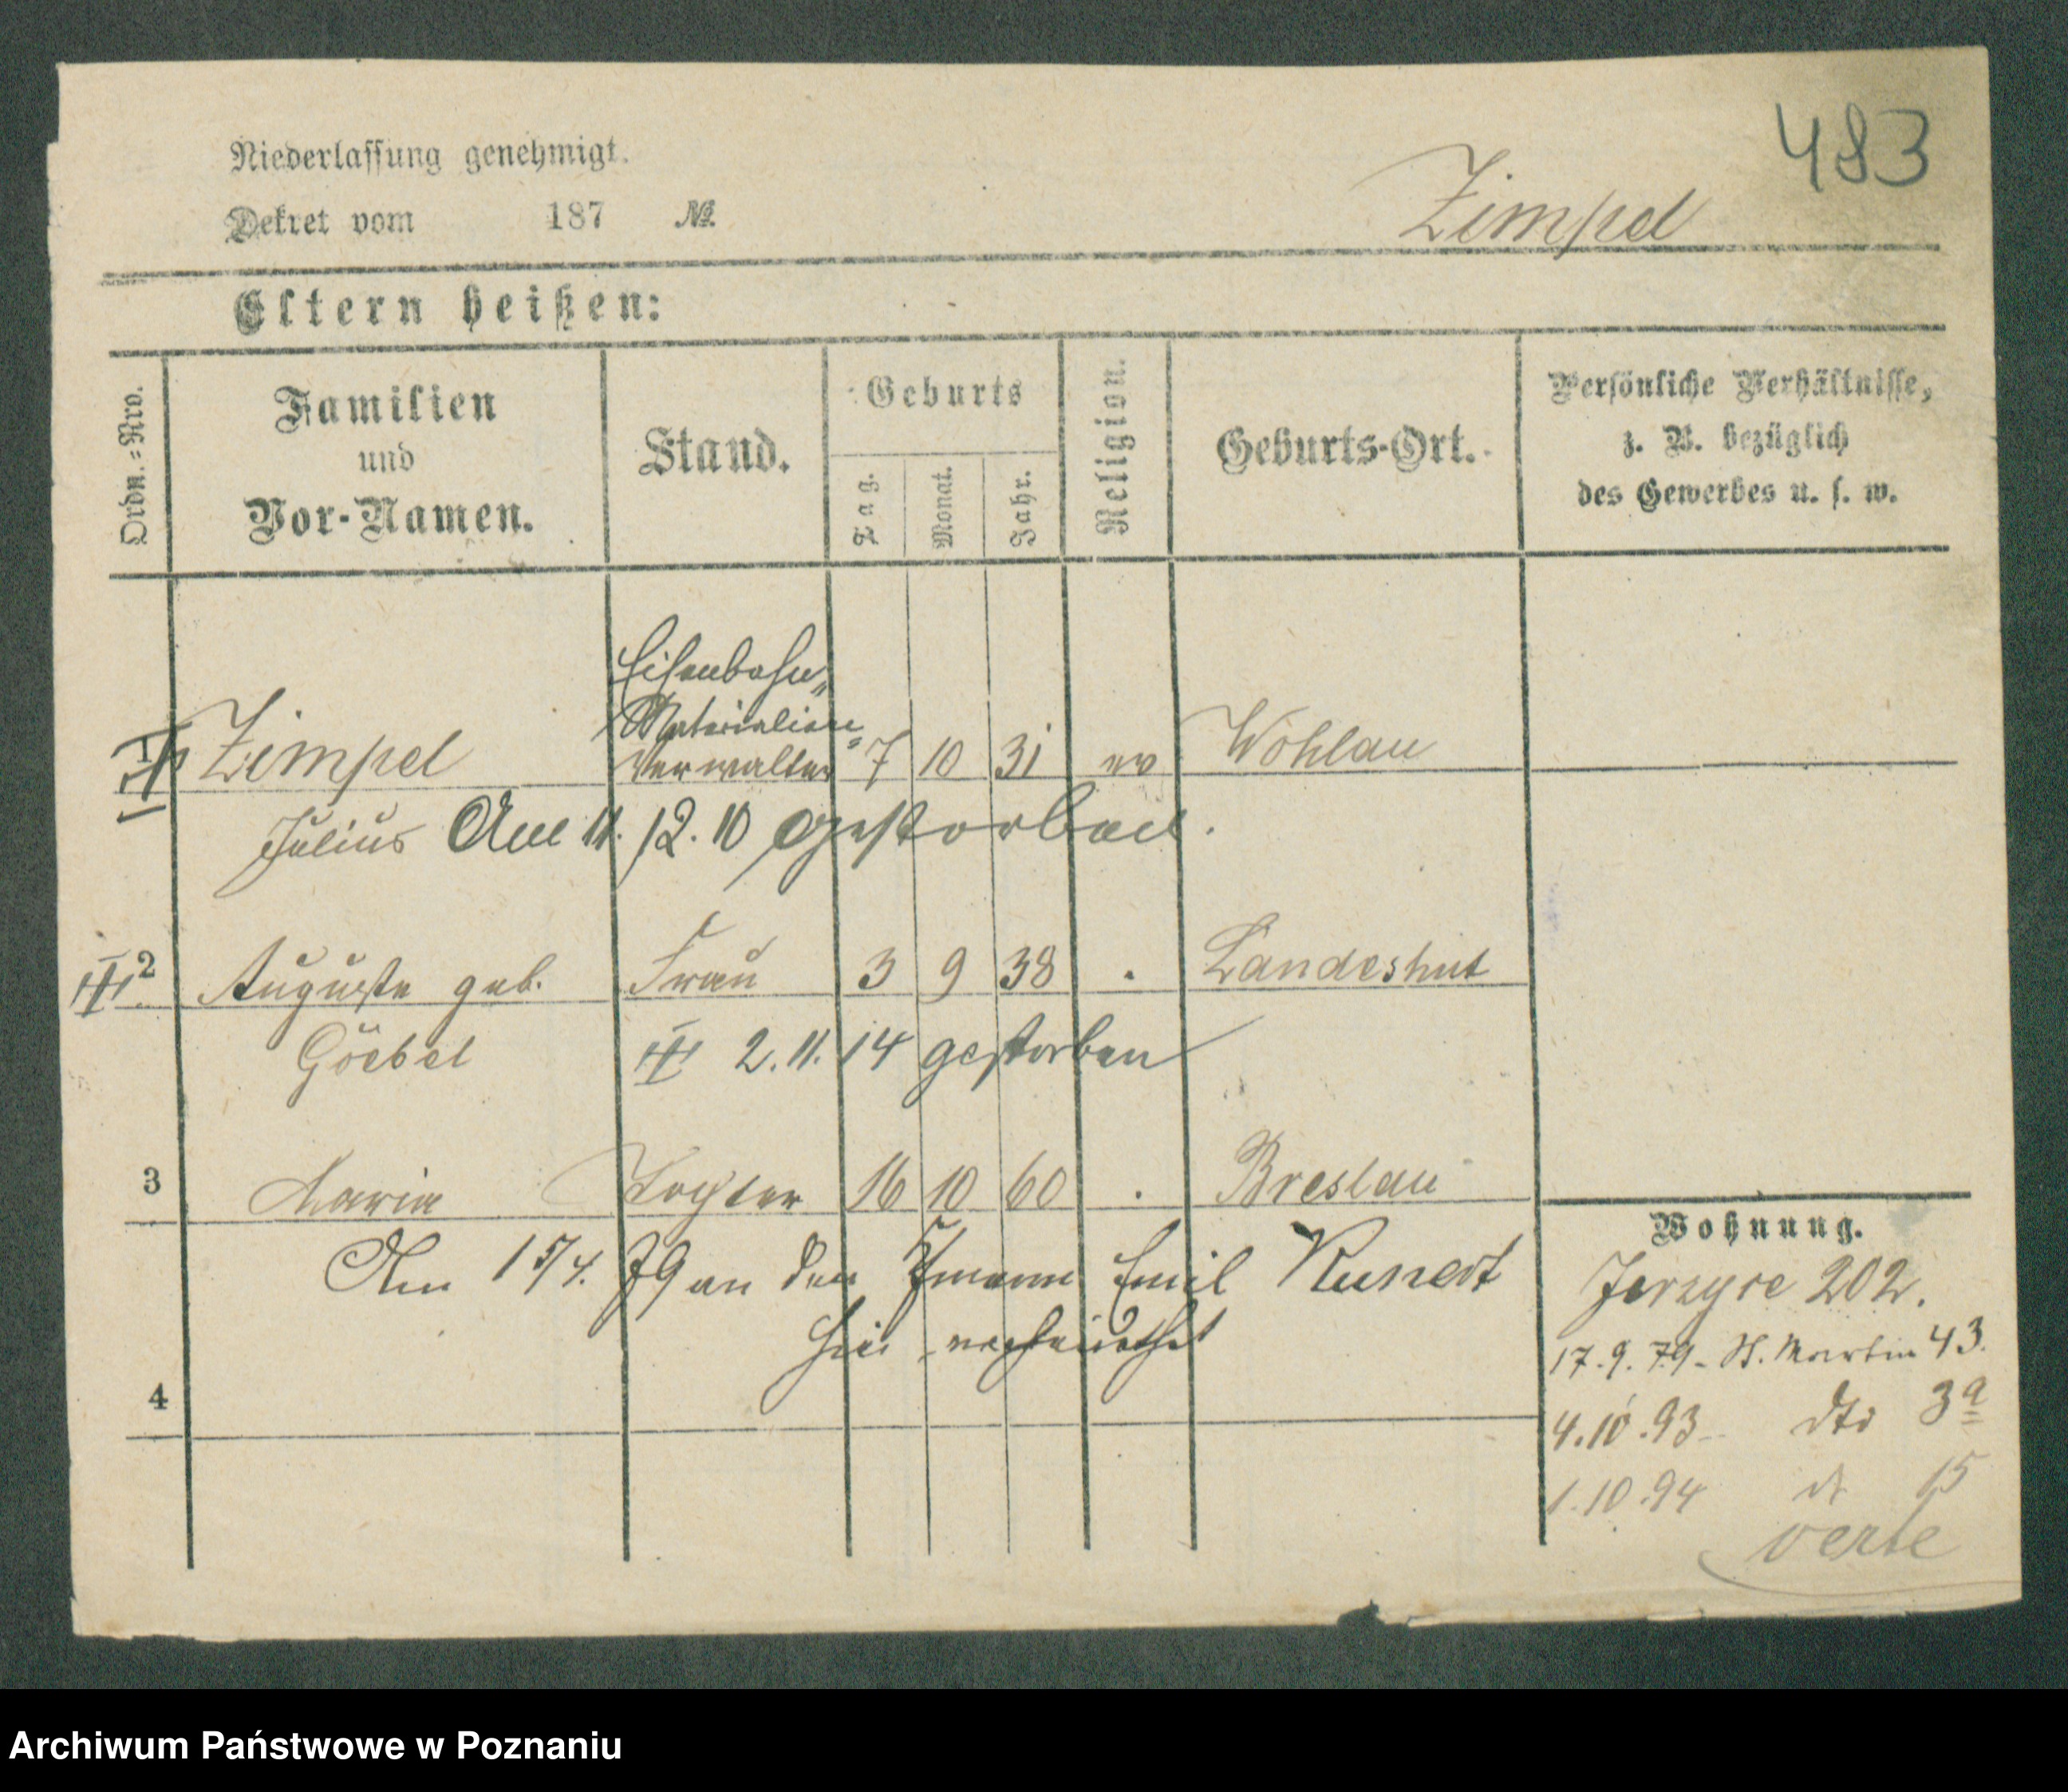 483
Niederlassung genehmigt.
Dekret vom 187 №
Zimpel
Eltern heißen:
Ordn.-Nro.
Familien
und
Vor-Namen.
Stand.
Geburts
Tag.
Monat.
Jahr.
Religion.
Geburts-Ort.
Persönliche Verhältnisse,
z. B. bezüglich
des Gewerbes u. s. w.
Eisenbahn-
Materialien-
1 Zimpel Verwalter 7 10 31 ev Wohlau
Julius Am 11. 12. 10 gestorben.
2 Auguste geb. Frau 3 9 38 . Landeshut
Goebel 2. 11. 14 gestorben
3 Maria Tochter 16 10 60 . Breslau
Am 15/4. 79 an den Emil Kunert
hier verheirathet
4
Wohnung.
Jerzyce 202.
17. 9. 79 - St. Martin 43.
4. 10. 93 - dto 3a
1. 10. 94 do 15
verte
Archiwum Państwowe w Poznaniu